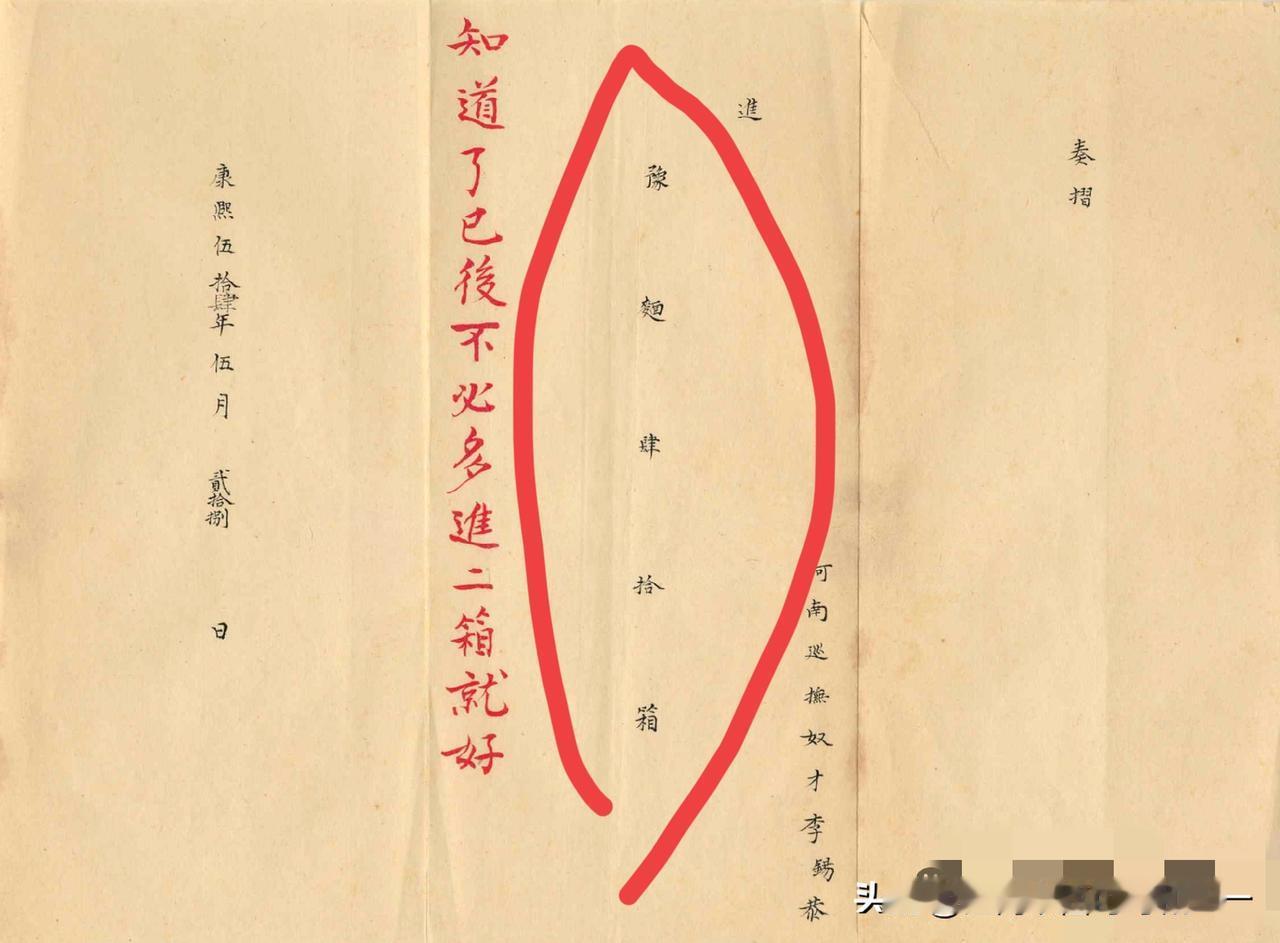 奏摺
河南巡撫奴才李錫恭
進
豫麵肆拾箱
知道了已後不必多進二箱就好
康熙伍拾肆年伍月貳拾捌日
头
一